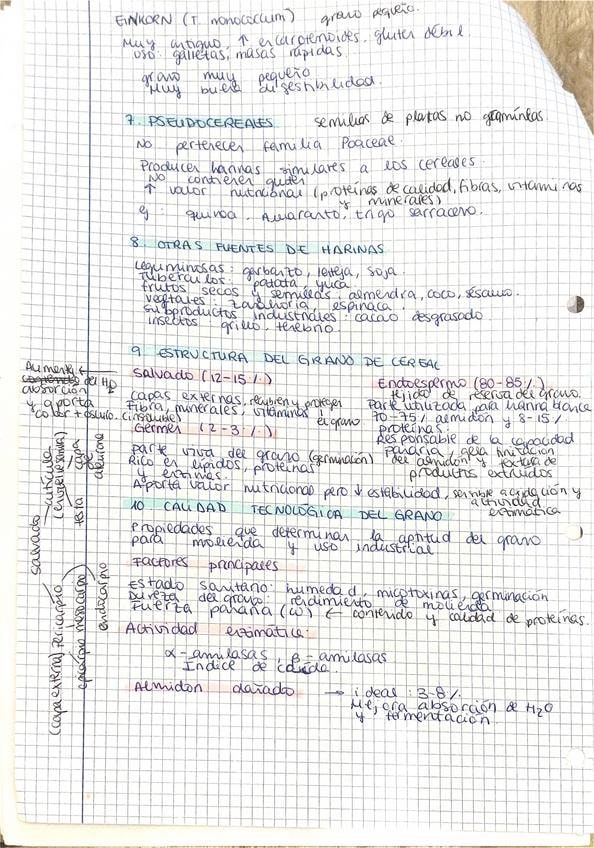 EINKORN (T. monococcum) grano pequeño.
Muy antiguo, ↑ en carotenoides, gluten débil
uso: galletas, masas rápidas.
grano muy pequeño
Muy buena digestibilidad.
7. PSEUDOCEREALES semillas de plantas no gramíneas.
No pertenecen familia Poaceae.
Producen harinas similares a los cereales.
No contienen gluten
↑ valor nutricional (proteínas de calidad, fibras, vitaminas
y minerales)
ej: quinoa, Amaranto, trigo sarraceno.
8. OTRAS FUENTES DE HARINAS
Leguminosas: garbanzo, lenteja, soja.
Tubérculos: patata, yuca.
frutos secos y semillas: almendra, coco, sésamo.
vegetales: zanahoria, espinaca.
subproductos industriales: cacao desgrasado
insectos: grillo, tenebrio.
9. ESTRUCTURA DEL GRANO DE CEREAL
Salvado (12-15%)
capas externas, recubren y protegen
el grano
Fibra, minerales, vitaminas
(insoluble)
Aumenta
absorción
del H2O
y aporta
color + oscuro.
Germen (2-3%)
parte viva del grano (germinación)
Rico en lípidos, proteínas
y enzimas.
Aporta valor nutricional pero ↓ estabilidad, sensible a oxidación y
actividad
enzimática
Endospermo (80-85%)
tejido de reserva del grano.
Parte utilizada para harina blanca
70-75% almidón y 8-15%
proteínas.
Responsable de la capacidad
panaria, gelatinización
del almidón y textura de
productos extruidos
10. CALIDAD TECNOLÓGICA DEL GRANO
Propiedades que determinan la aptitud del grano
para molienda y uso industrial
Factores principales
Estado sanitario: humedad, micotoxinas, germinación
Dureza del grano: rendimiento de molienda
Fuerza panaria (W) ← contenido y calidad de proteínas.
Actividad enzimática:
α-amilasas, β-amilasas
Índice de caída.
Almidón dañado → ideal: 3-8%
Mejora absorción de H2O
y fermentación.
Salvado
cutícula
testa
capa
de
aleurona
(capa externa) Pericarpio
epicarpio
mesocarpio
endocarpio